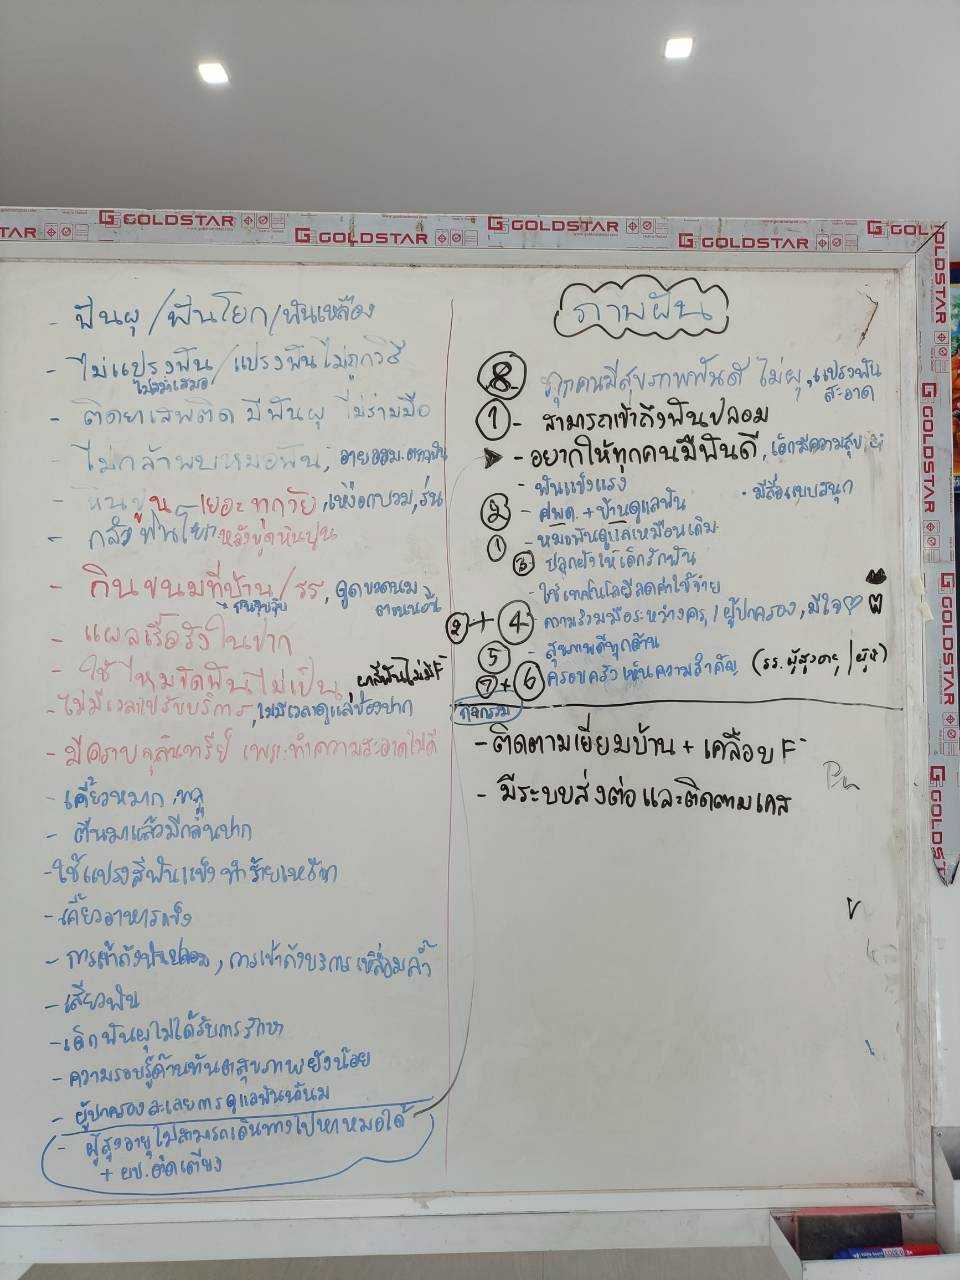 GOLDSTAR
GOLDSTAR
GOLDSTAR
GOLDSTAR
GOLDSTAR
GOLDSTAR
- ฟันผุ/ฟันโยก/ฟันเหลือง
- ไม่แปรงฟัน/แปรงฟันไม่ถูกวิธี
ไม่สม่ำเสมอ
- ติดยาเสพติด มีฟันผุ ไม่ร่วมมือ
- ไม่กล้าพบหมอฟัน,
- หินปูน เยอะ ทุกวัย, เหงือกบวม, ร่น
- กลัวฟันโยก หลังขูดหินปูน
- กินขนมที่บ้าน/รร, ดูดขวดนม
- แผลเรื้อรังในปาก
- ใช้ไหมขัดฟันไม่เป็น, ยาสีฟันไม่มี F⁻
- ไม่มีเวลาไปรับบริการ, ไม่มีเวลาดูแลช่องปาก
- มีคราบจุลินทรีย์ เพราะทำความสะอาดไม่ดี
- เคี้ยวหมาก, พลู
- ตื่นมาแล้วมีกลิ่นปาก
- ใช้แปรงสีฟันแข็ง ทำร้ายเหงือก
- เคี้ยวอาหารแข็ง
- การเข้าถึงฟันปลอม, การเข้าถึงบริการ เหลื่อมล้ำ
- เสียวฟัน
- เด็กฟันผุไม่ได้รับการรักษา
- ความรอบรู้ด้านทันตสุขภาพยังน้อย
- ผู้ปกครองละเลยการดูแลฟันน้ำนม
- ผู้สูงอายุไม่สามารถเดินทางไปหาหมอได้
+ ผป. ติดเตียง
ภาพฝัน
8 ทุกคนมีสุขภาพฟันดี ไม่ผุ, แปรงฟัน
สะอาด
1 - สามารถเข้าถึงฟันปลอม
- อยากให้ทุกคนมีฟันดี, เด็กมีความสุข
- ฟันแข็งแรง
• มีสื่อแบบสนุก
2 - ศพด. + บ้านดูแลฟัน
1 - หมอฟันดูแลเหมือนเดิม
3 ปลูกฝังให้เด็กรักฟัน
- ใช้เทคโนโลยีลดค่าใช้จ่าย
2 + 4 ความร่วมมือระหว่างครู/ผู้ปกครอง, มีใจ
5 - สุขภาพดีทุกด้าน
7 + 6 ครอบครัวเห็นความสำคัญ (รร. ผู้สูงอายุ
กิจกรรม
- ติดตามเยี่ยมบ้าน + เคลือบ F⁻
- มีระบบส่งต่อและติดตามเคส